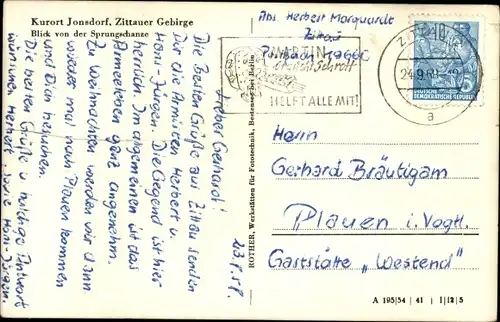 Kurort Jonsdorf, Zittauer Gebirge
Blick von der Sprungschanze
Abs. Herbert Marquardt
Zittau
Postfach
MARTIN
Schrott
HELFT ALLE MIT!
24.9.58
a
DEUTSCHE
DEMOKRATISCHE REPUBLIK
5
23.9.58.
Lieber Gerhardt!
Die Besten Grüße aus Zittau senden
Dir die Armisten Herbert u.
Hans-Jürgen. Die Gegend ist hier
herrlich. Im allgemeinen ist das
Armeeleben ganz angenehm.
Zu Weihnachten werden wir dann
wieder mal nach Plauen kommen
und Dich besuchen.
Die besten Grüße u. baldige Antwort
wünschen Herbert sowie Hans-Jürgen.
ROTHER, Werkstätten für Fototechnik, Beetensee bei Berlin
Herrn
Gerhard Bräutigam
Plauen i. Vogtl.
Gaststätte „Westend"
A 195/54 | 41 | 1/12/5